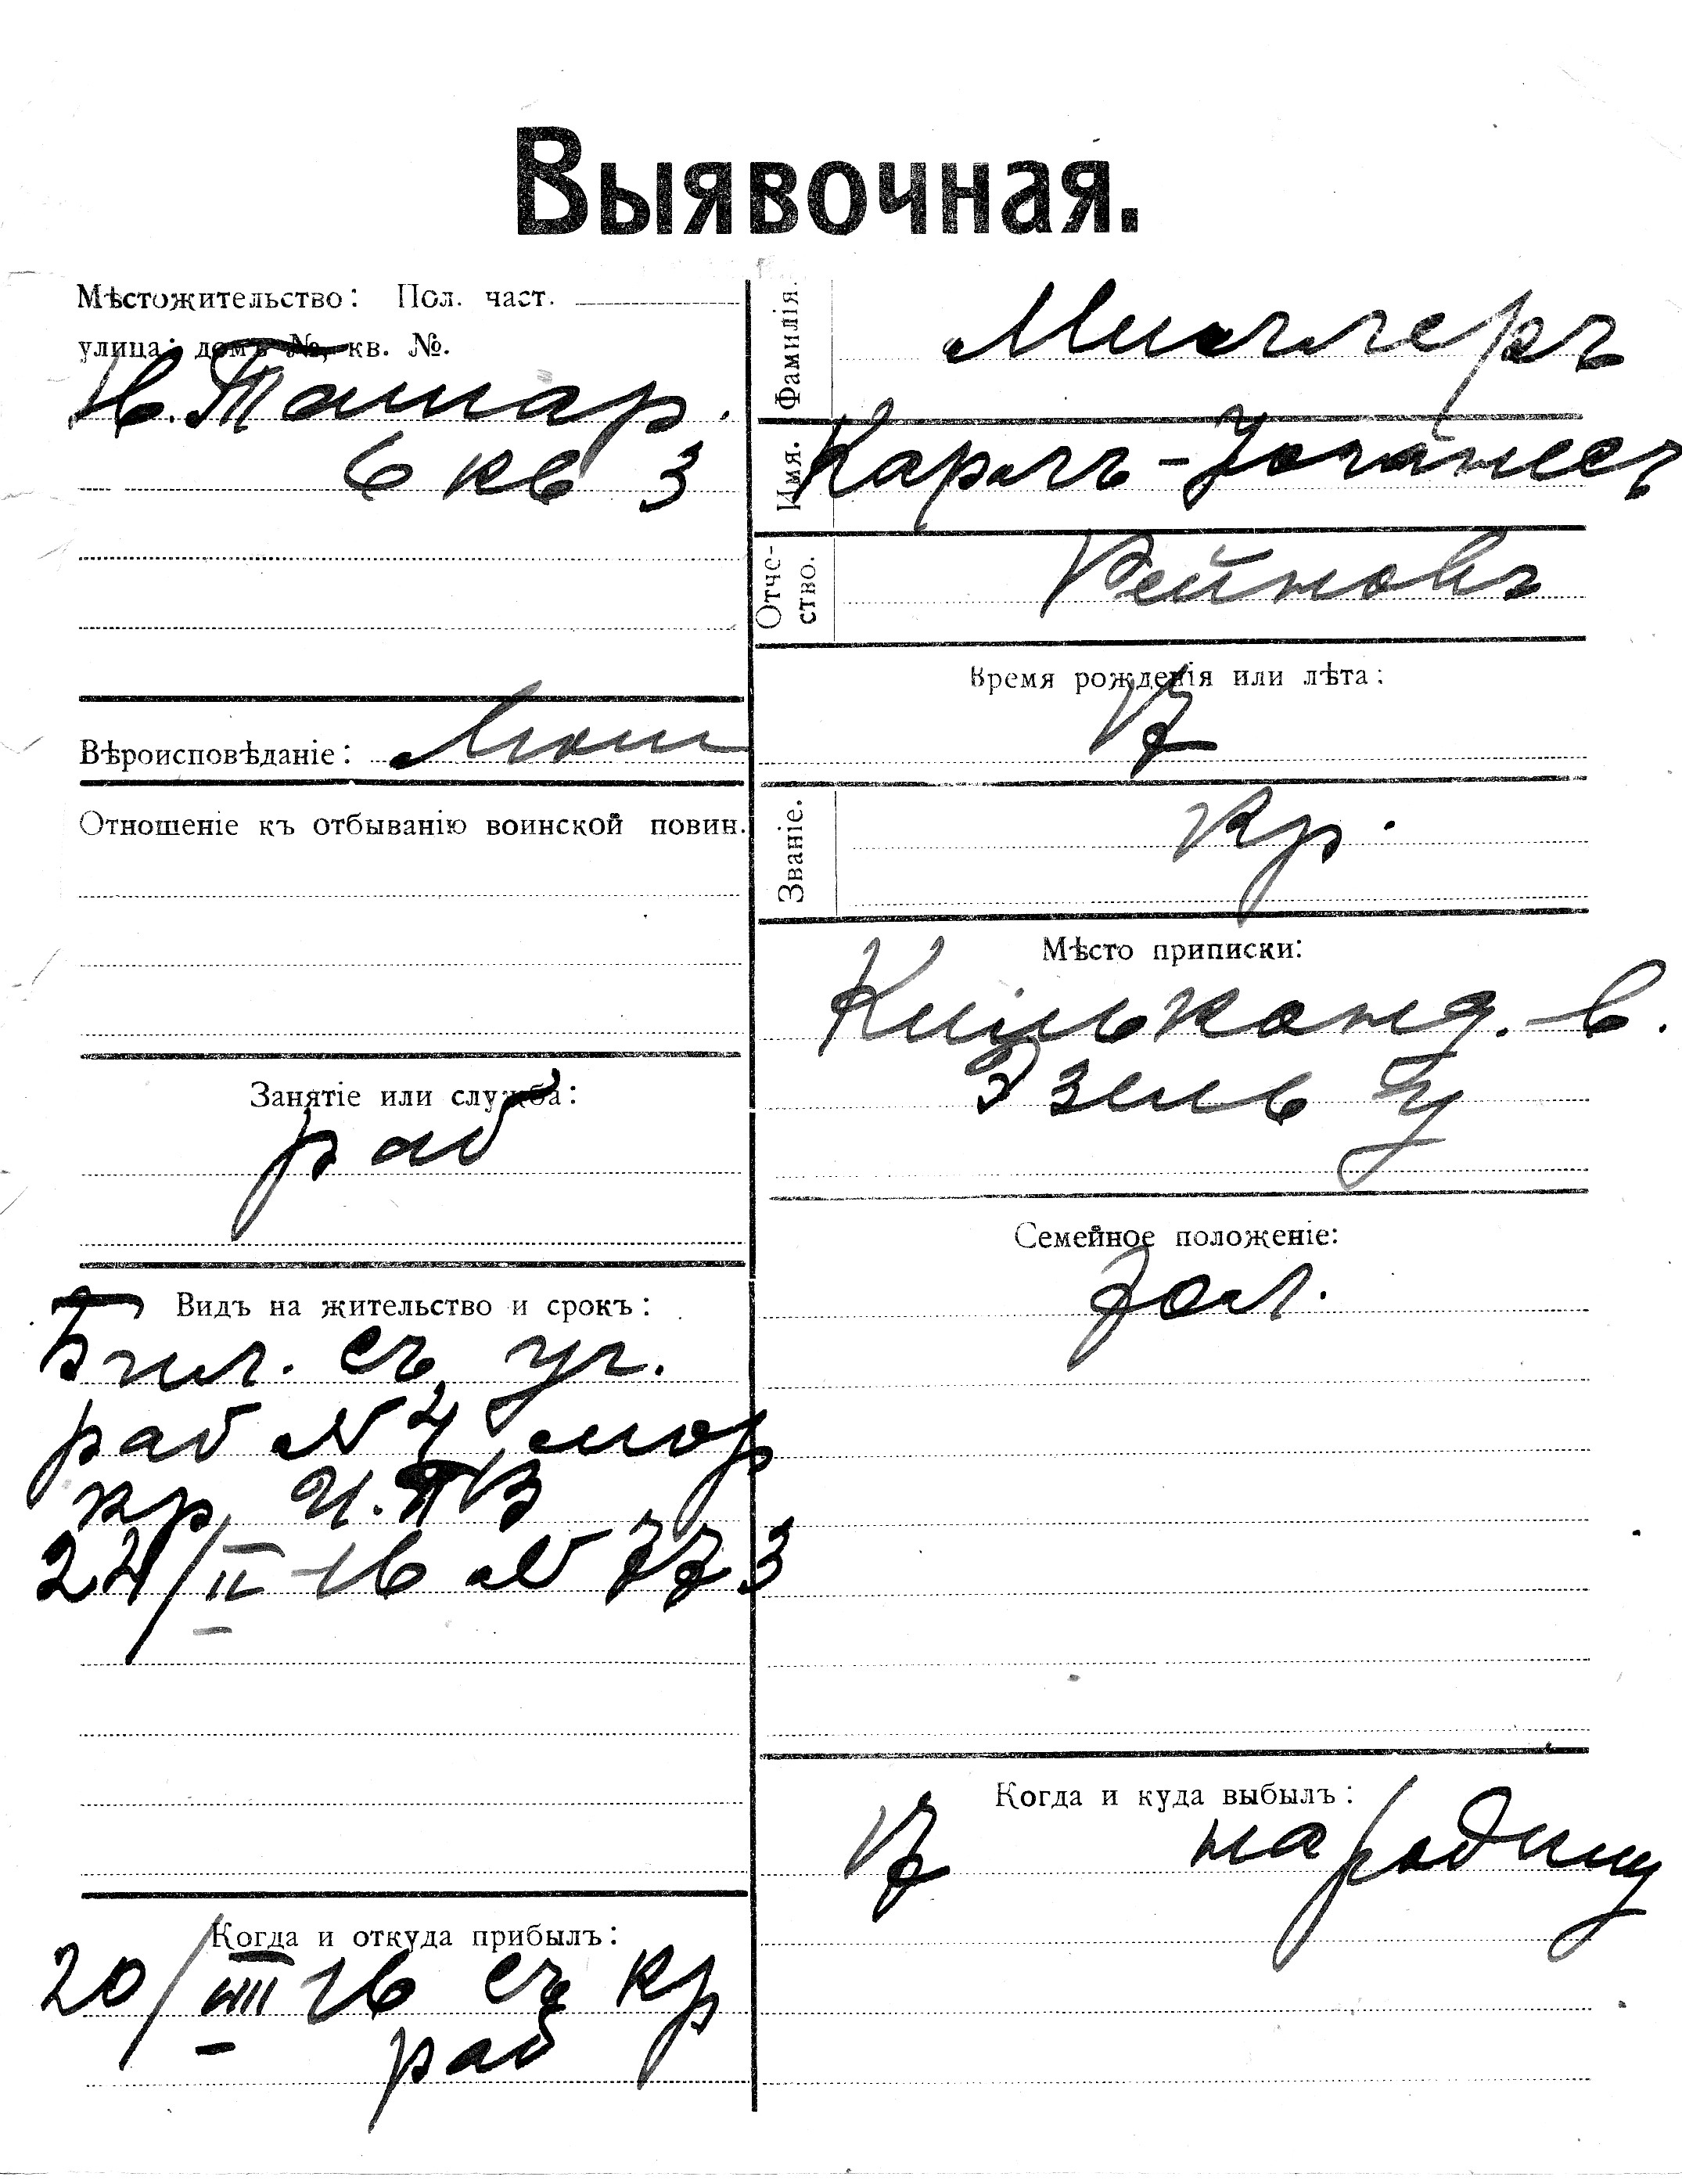 Выявочная.
Мѣстожительство: Пол. част.
улица: домъ №, кв. №.
Н. Ташар.
6 кв 3
Вѣроисповѣданіе: Лют
Отношеніе къ отбыванію воинской повин.
Занятіе или служба:
раб
Видъ на жительство и срокъ:
Бил. съ уч.
раб № 4 мор
кр И. П В
24/II-16 № 773
Когда и откуда прибылъ:
20/VIII 16 съ кр
раб
Фамилія. Миллеръ
Имя. Карлъ-Іоганесъ
Отче-
ство. Рейновъ
Время рожденія или лѣта:
Званіе. кр.
Мѣсто приписки:
Кильконд. в.
Эзель у
Семейное положеніе:
хол.
Когда и куда выбылъ:
на родину